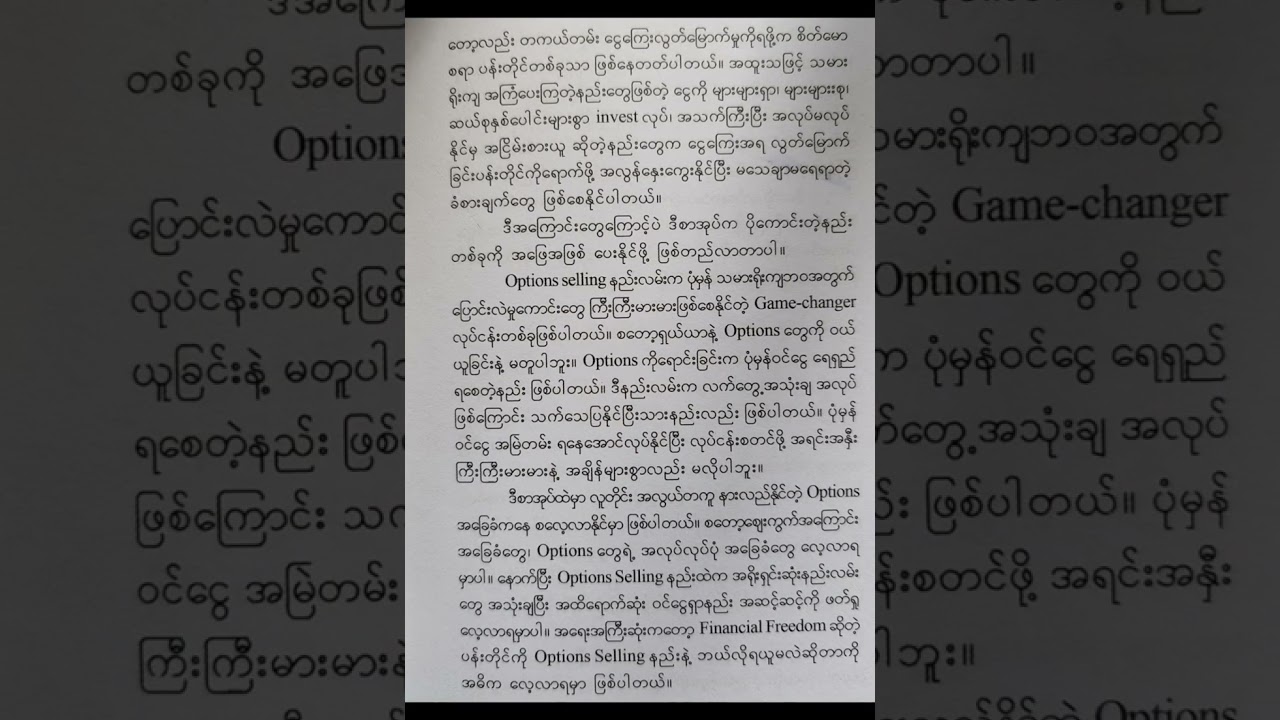 တော့လည်း တကယ်တမ်း ငွေကြေးလွတ်မြောက်မှုကိုရဖို့က စိတ်မော
စရာ ပန်းတိုင်တစ်ခုသာ ဖြစ်နေတတ်ပါတယ်။ အထူးသဖြင့် သမား
ရိုးကျ အကြံပေးကြတဲ့နည်းတွေဖြစ်တဲ့ ငွေကို များများရှာ၊ များများစု၊
ဆယ်စုနှစ်ပေါင်းများစွာ invest လုပ်၊ အသက်ကြီးပြီး အလုပ်မလုပ်
နိုင်မှ အငြိမ်းစားယူ ဆိုတဲ့နည်းတွေက ငွေကြေးအရ လွတ်မြောက်
ခြင်းပန်းတိုင်ကိုရောက်ဖို့ အလွန်နှေးကွေးနိုင်ပြီး မသေချာမရေရာတဲ့
ခံစားချက်တွေ ဖြစ်စေနိုင်ပါတယ်။
ဒီအကြောင်းတွေကြောင့်ပဲ ဒီစာအုပ်က ပိုကောင်းတဲ့နည်း
တစ်ခုကို အဖြေအဖြစ် ပေးနိုင်ဖို့ ဖြစ်တည်လာတာပါ။
Options selling နည်းလမ်းက ပုံမှန် သမားရိုးကျဘဝအတွက်
ပြောင်းလဲမှုကောင်းတွေ ကြီးကြီးမားမားဖြစ်စေနိုင်တဲ့ Game-changer
လုပ်ငန်းတစ်ခုဖြစ်ပါတယ်။ စတော့ရှယ်ယာနဲ့ Options တွေကို ဝယ်
ယူခြင်းနဲ့ မတူပါဘူး။ Options ကိုရောင်းခြင်းက ပုံမှန်ဝင်ငွေ ရေရှည်
ရစေတဲ့နည်း ဖြစ်ပါတယ်။ ဒီနည်းလမ်းက လက်တွေ့အသုံးချ အလုပ်
ဖြစ်ကြောင်း သက်သေပြနိုင်ပြီးသားနည်းလည်း ဖြစ်ပါတယ်။ ပုံမှန်
ဝင်ငွေ အမြဲတမ်း ရနေအောင်လုပ်နိုင်ပြီး လုပ်ငန်းစတင်ဖို့ အရင်းအနှီး
ကြီးကြီးမားမားနဲ့ အချိန်များစွာလည်း မလိုပါဘူး။
ဒီစာအုပ်ထဲမှာ လူတိုင်း အလွယ်တကူ နားလည်နိုင်တဲ့ Options
အခြေခံကနေ စလေ့လာနိုင်မှာ ဖြစ်ပါတယ်။ စတော့ဈေးကွက်အကြောင်း
အခြေခံတွေ၊ Options တွေရဲ့ အလုပ်လုပ်ပုံ အခြေခံတွေ လေ့လာရ
မှာပါ။ နောက်ပြီး Options Selling နည်းထဲက အရိုးရှင်းဆုံးနည်းလမ်း
တွေ အသုံးချပြီး အထိရောက်ဆုံး ဝင်ငွေရှာနည်း အဆင့်ဆင့်ကို ဖတ်ရှု
လေ့လာရမှာပါ။ အရေးအကြီးဆုံးကတော့ Financial Freedom ဆိုတဲ့
ပန်းတိုင်ကို Options Selling နည်းနဲ့ ဘယ်လိုရယူမလဲဆိုတာကို
အဓိက လေ့လာရမှာ ဖြစ်ပါတယ်။